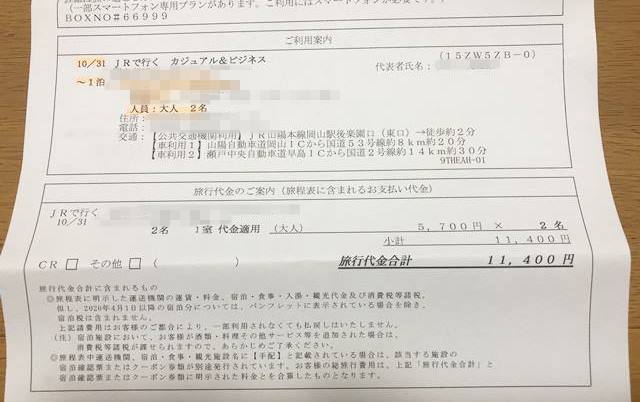 (一部スマートフォン専用プランがあります。ご利用にはスマートフォンが必要です。)
BOXNO#66999
ご利用案内
10/31 JRで行く カジュアル&ビジネス (15ZW5ZB-0)
~1泊 代表者氏名:
人員:大人 2名
住所:
電話:
交通:【公共交通機関利用】JR山陽本線岡山駅後楽園口(東口)→徒歩約2分
【車利用1】山陽自動車道岡山ICから国道53号線約8km約20分
【車利用2】瀬戸中央自動車道早島ICから国道2号線約14km約30分
9THEAH-01
旅行代金のご案内(旅程表に含まれるお支払い代金)
JRで行く
10/31
2名 1室 代金適用 (大人) 5,700円 × 2名
小計 11,400円
CR □ その他 □ ( ) 旅行代金合計 11,400円
旅行代金合計に含まれるもの
◎旅程表に明示した運送機関の運賃・料金、宿泊・食事・入湯・観光代金及び消費税等諸税。
但し、2020年4月1日以降の宿泊分については、パンフレットに表示されている場合を除き、
宿泊税は含まれません。
上記諸費用はお客様のご都合により、一部利用されなくても払戻しはいたしません。
(注)宿泊施設において、お客様が酒類・料理その他サービス等を追加された場合は、
消費税等諸税が課せられますので、あらかじめご了承ください。
◎旅程表中運送機関、宿泊・食事・観光施設名に【手配】と記載されている場合は、該当する施設の
宿泊確認票またはクーポン券類が別途発行されています。お客様の総旅行費用は、上記「旅行代金合計」と
宿泊確認票またはクーポン券類に明示された料金とを合算したものとなります。